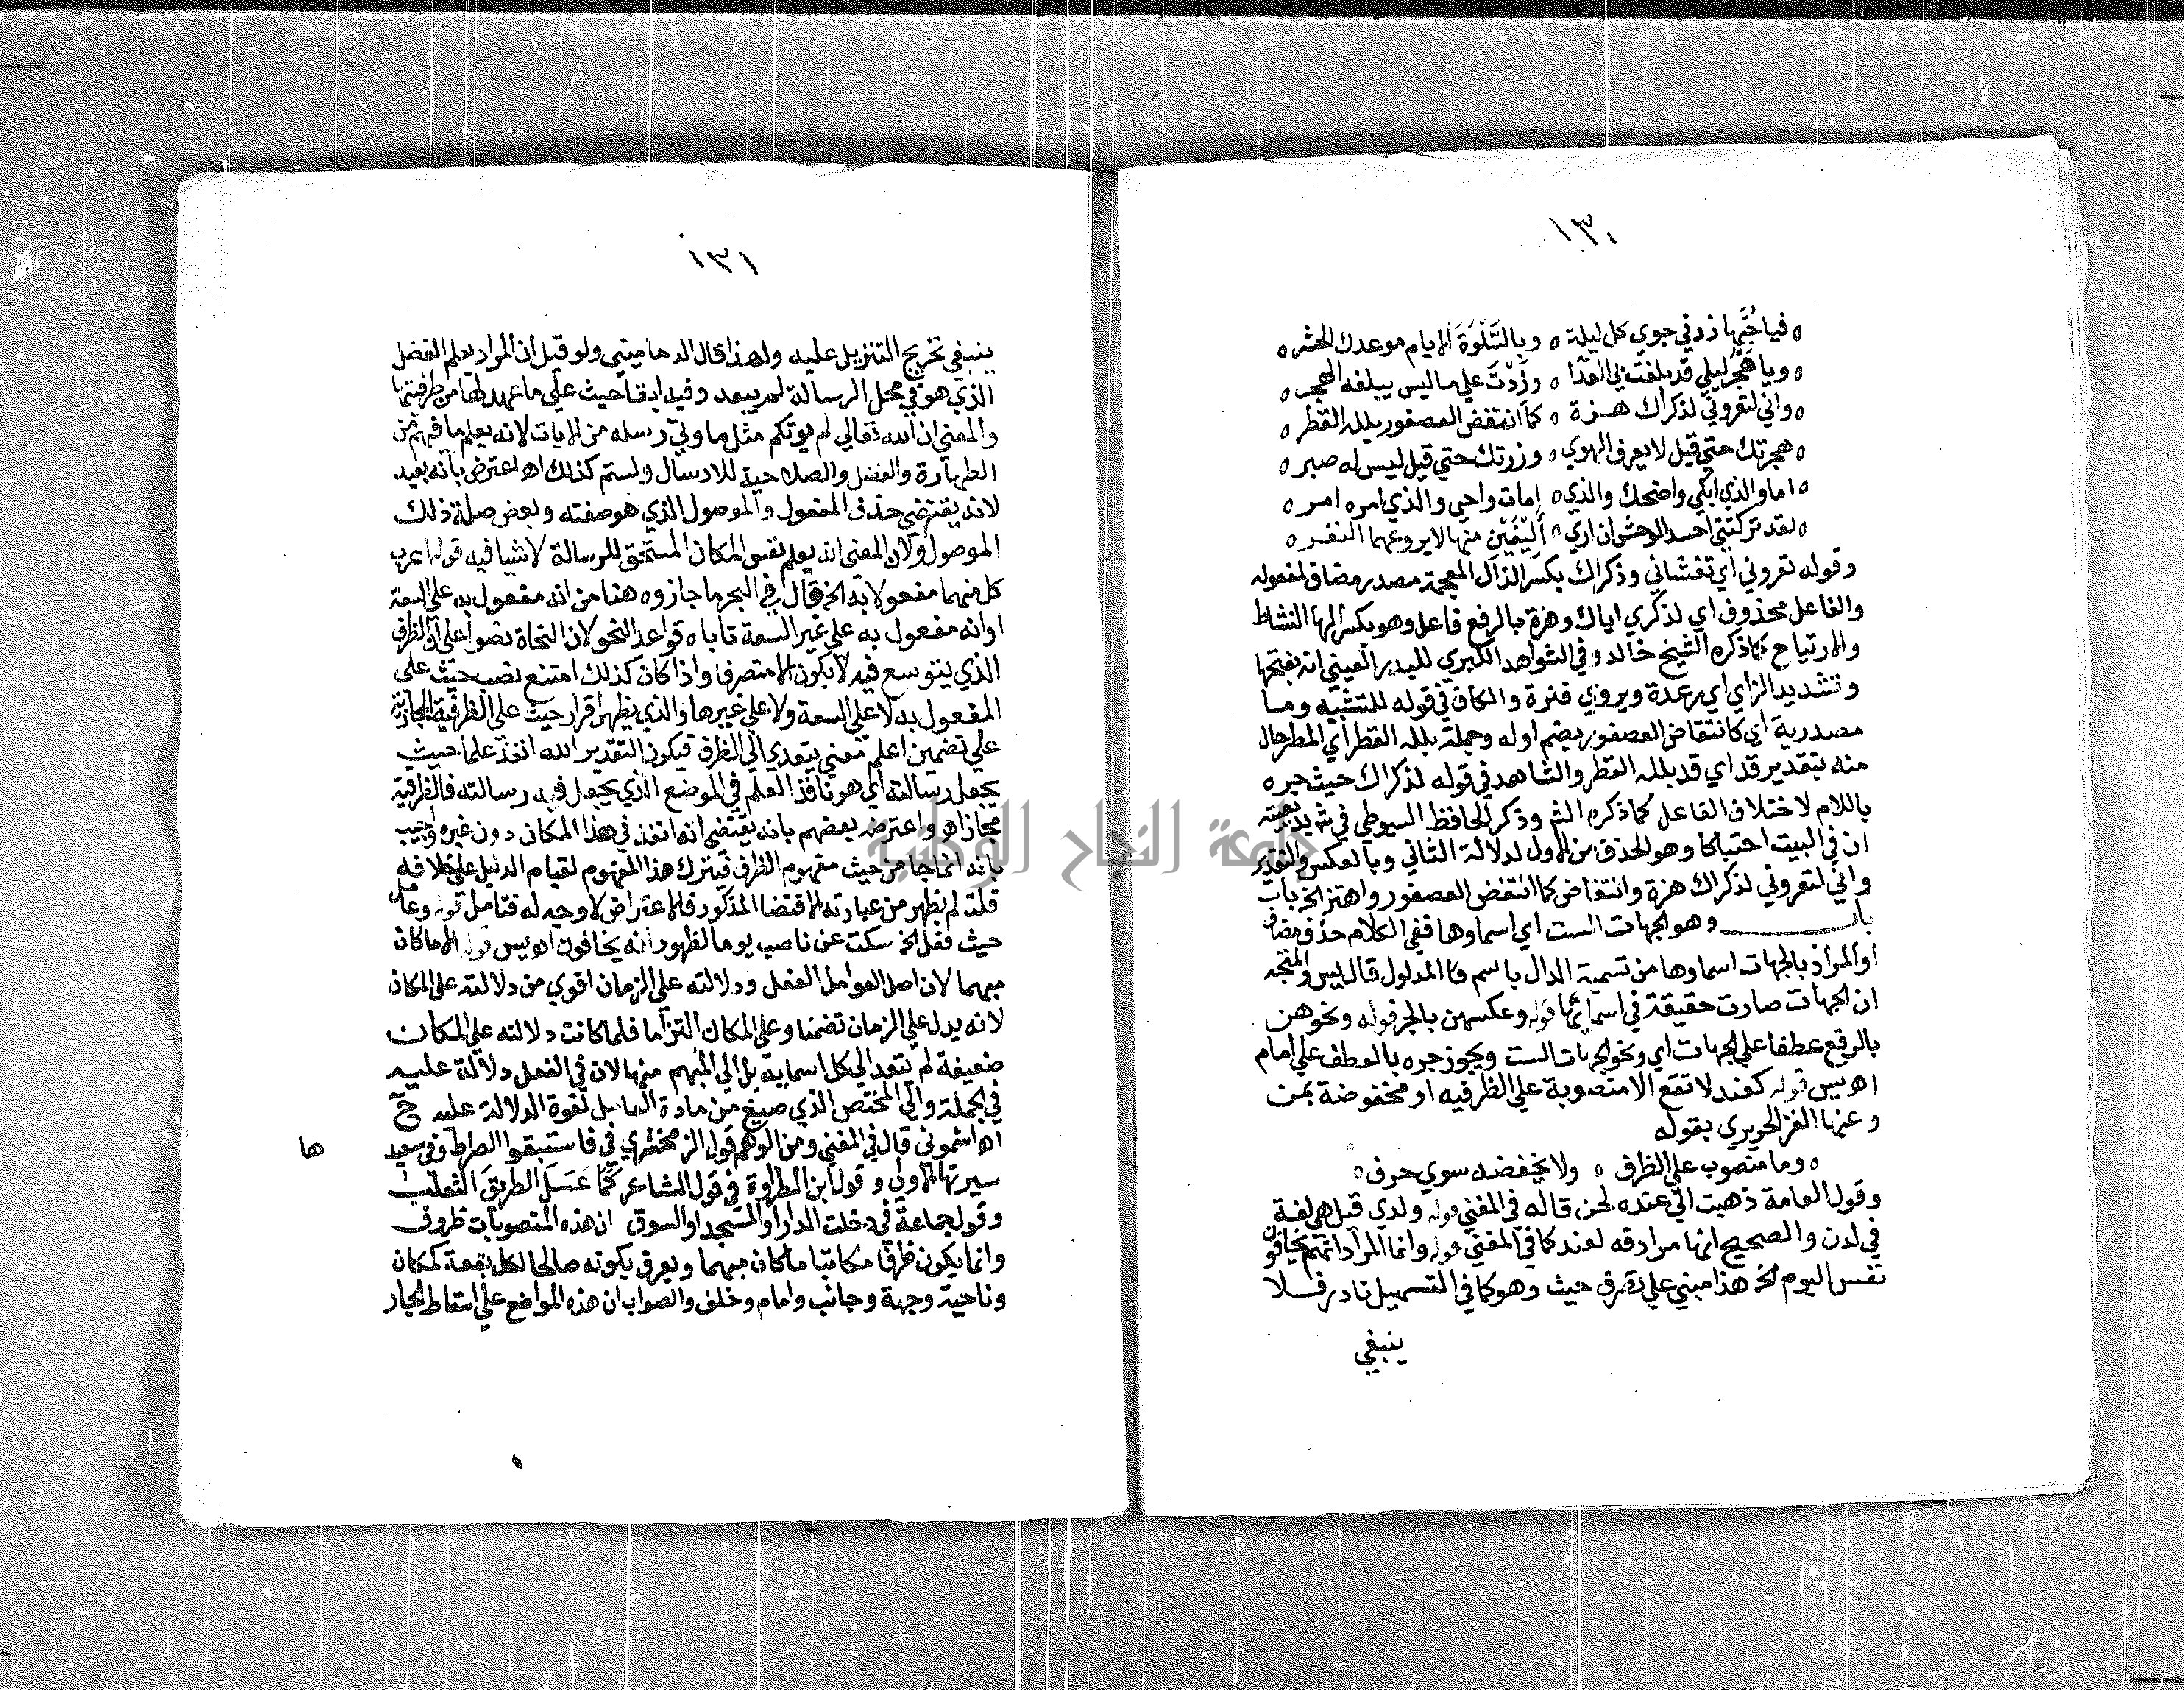 ١٣٠
فيا حُبَّها زدني جوي كل ليلة ه وبالسَّلْوَة الايام موعدك الحشر ه
ويا هَجْرَ ليلي قد بلغت بي المدا ه وزِدْتَ علي ما ليس يبلغه الهجر ه
واني لتعروني لذكراك هزة ه كما انتفض العصفور بلله القطر ه
هجرتك حتي قيل لا يعرف الهوي ه وزرتك حتي قيل ليس له صبر ه
اما والذي ابكي واضحك والذي ه امات واحي والذي امره امر ه
لقد تركتني احسد الوحش ان اري ه أَلِيْفَيْن منها لا يروعهما النفر ه
وقوله تعروني اي تغشاني وذكراك بكسر الذال المعجمة مصدر مضاف لمفعوله
والفاعل محذوف اي لذكري اياك وهزة بالرفع فاعل وهو بكسر الها النشاط
والارتياح كما ذكره الشيخ خالد وفي الشواهد الكبري للبدر العيني انه بفتحها
وتشديد الزاي اي رعدة ويروي فترة والكاف في قوله للتشبيه وما
مصدرية اي كانتقاض العصفور بضم اوله وجملة بلله القطر اي المطر حال
منه بتقدير قد اي قد بلله القطر والشاهد في قوله لذكراك حيث جره
باللام لاختلاف الفاعل كما ذكره الش وذكر الحافظ السيوطي في
ان في البيت احتباكا وهو الحذف من الاول لدلالة الثاني وبالعكس والتقدير
واني لتعروني لذكراك هزة وانتفاض كما انتفض العصفور واهتز الخ باب
وهو الجهات الست اي اسماوها ففي الكلام حذف مضاف
او المراد بالجهات اسماوها من تسمية الدال باسم المدلول قال يس والمتجه
ان الجهات صارت حقيقة في اسمائها قوله وعكسهن بالجر قوله ونحوهن
بالرفع عطفا علي الجهات اي ونحو الجهات الست ويجوز جره بالعطف علي امام
اه يس قوله كعند لا تقع الا منصوبة علي الظرفيه او مخفوضة بمن
وعنها الغز الحريري بقوله
ه وما منصوب علي الظرف ه ولا يخفضه سوي حرف ه
وقول العامة ذهبت الي عنده لحن قاله في المغني قوله ولدي قيل هي لغة
في لدن والصحيح انها مرادفه لعند كما في المغني قوله وانما المراد انهم يخافون
نفس اليوم الخ هذا مبني علي تصرف حيث وهو كما في التسهيل نادر فلا
ينبغي
١٣١
ينبغي تخريج التنزيل عليه ولهذا قال الدماميني ولو قيل ان المراد يعلم الفضل
الذي هو في محل الرسالة لم يبعد وفيه ابقا حيث علي ما عهد لها من ظرفيتها
والمعني ان الله تعالي لم يوتكم مثل ما وتي رسله من الايات لانه يعلم ما فيهم من
الطهارة والفضل والصلاحية للارسال ولستم كذلك اه اعترض بانه بعيد
لانه يقتضي حذف المفعول والموصول الذي هو صفته وبعض صلة ذلك
الموصول ولان المعني انه يعلم نفس المكان المستحق للرسالة لا شيا فيه قوله اعرب
كل منهما مفعولا به الخ قال في البحر ما جازوه هنا من انه مفعول به علي السعة
او انه مفعول به علي غير السعة تاباه قواعد النحو لان النحاة نصوا علي ان الظرف
الذي يتوسع فيه لا يكون الا متصرفا واذا كان كذلك امتنع نصب حيث علي
المفعول به لا علي السعة ولا علي غيرها والذي يظهر اقرار حيث علي الظرفية المجازية
علي تضمين اعلم معني يتعدي الي الظرف فيكون التقدير الله انفذ علما حيث
يجعل رسالته اي هو نافذ العلم في الموضع الذي يجعل فيه رسالته فالظرفية
مجاز اه واعترضه بعضهم بانه يقتضي انه انفذ في هذا المكان دون غيره واجيب
بانه انما جا من حيث مفهوم الظرف فيترك هذا المفهوم لقيام الدليل علي خلافه
قلت لم يظهر من عبارته الاقتضا المذكور فالاعتراض لا وجه له فتامل قوله
حيث فعل الخ سكت عن ناصب يوما لظهور انه يخافون اه يس قوله الا ما كان
مبهما لان اصل العوامل الفعل ودلالته علي الزمان اقوي من دلالته علي المكان
لانه يدل علي الزمان تضمنا وعلي المكان التزاما فلما كانت دلالته علي المكان
ضعيفة لم يتعد الي كل اسمايه بل الي المبهم منها لان في الفعل دلالة عليه
في الجملة والي المختص الذي صيغ من مادة العامل لقوة الدلالة عليه ح
اه اشموني قال في المغني ومن الوهم قول الزمخشري في فاستبقوا الصراط وفي سنعيد
ها
سيرتها الاولي وقول ابن الطراوة في قول الشاعر كَمَا عَسَلَ الطريقَ الثعلب
وقول جماعة في دخلت الدار او المسجد او السوق ان هذه المنصوبات ظروف
وانما يكون ظرفا مكانيا ما كان مبهما ويعرف بكونه صالحا لكل بقعة كمكان
وناحية وجهة وجانب وامام وخلف والصواب ان هذه المواضع علي اسقاط الجار
جامعة النجاح الوطنية